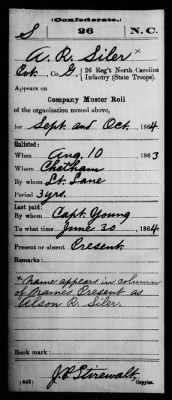 (Confederate.)
S 26 N.C.
A. R. Siler x
Pvt., Co. G, 26 Reg't North Carolina
Infantry (State Troops)
Appears on
Company Muster Roll
of the organization named above,
for Sept. and Oct., 1864
Enlisted:
When Aug. 10, 1863
Where Chatham
By whom Lt. Lane
Period 3 yrs.
Last paid:
By whom Capt. Young
To what time June 30, 1864
Present or absent Present
Remarks:
x Name appears in column
of Names Present as
Alson R. Siler.
Book mark:
(642) J. P. Stirewalt
Copyist.